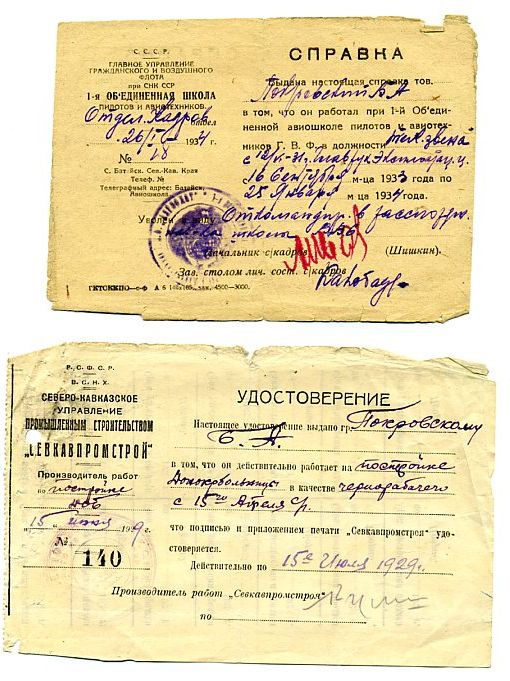 С. С. С. Р.
ГЛАВНОЕ УПРАВЛЕНИЕ
ГРАЖДАНСКОГО И ВОЗДУШНОГО
ФЛОТА
при СНК СССР
1-я ОБ'ЕДИНЕННАЯ ШКОЛА
ПИЛОТОВ И АВИОТЕХНИКОВ.
Отдел Кадров отдел
1934
№ 18
С. Батайск. Сев.-Кав. Края
Телеф. №
Телеграфный адрес: Батайск,
Авиошкола.
СПРАВКА
Выдана настоящая справка тов.
Покровский Б А
в том, что он работал при 1-й Об'еди-
ненной авиошколе пилотов и авиотех-
ников Г. В. Ф. в должности тех. звена
16 Сентября м-ца 1933 года по
25 Января м-ца 1934 года.
Уволен в виду Откомандир. в
школы №
Начальник с/кадров (Шишкин).
Зав. столом лич. сост. с/кадров
Р. С. Ф. С. Р.
В. С. Н. Х.
СЕВЕРО-КАВКАЗСКОЕ
УПРАВЛЕНИЕ
ПРОМЫШЛЕННЫМ СТРОИТЕЛЬСТВОМ
„СЕВКАВПРОМСТРОЙ"
Производитель работ
по постройке
15 июня 1929 г.
№
140
УДОСТОВЕРЕНИЕ
Настоящее удостоверение выдано гр. Покровскому
Б. А.
в том, что он действительно работает на постройке
в качестве чернорабочего
с 15го Апреля
что подписью и приложением печати „Севкавпромстроя" удо-
стоверяется.
Действительно по 15е Июля 1929г.
Производитель работ „Севкавпромстроя"
по